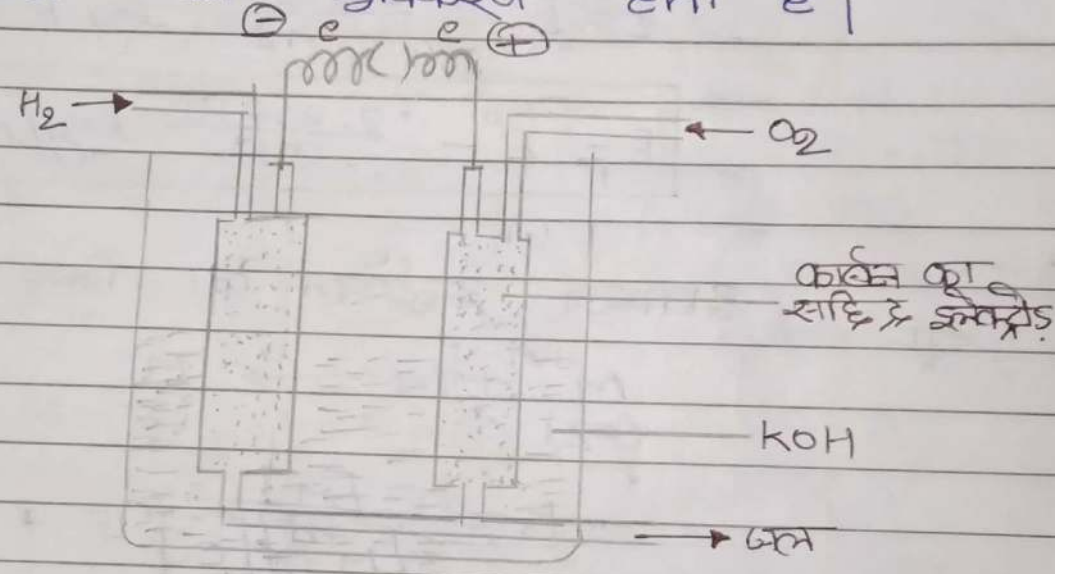 होता है।
⊖ e e ⊕
H₂
O₂
कार्बन का
सछिद्र इलेक्ट्रोड
KOH
जल